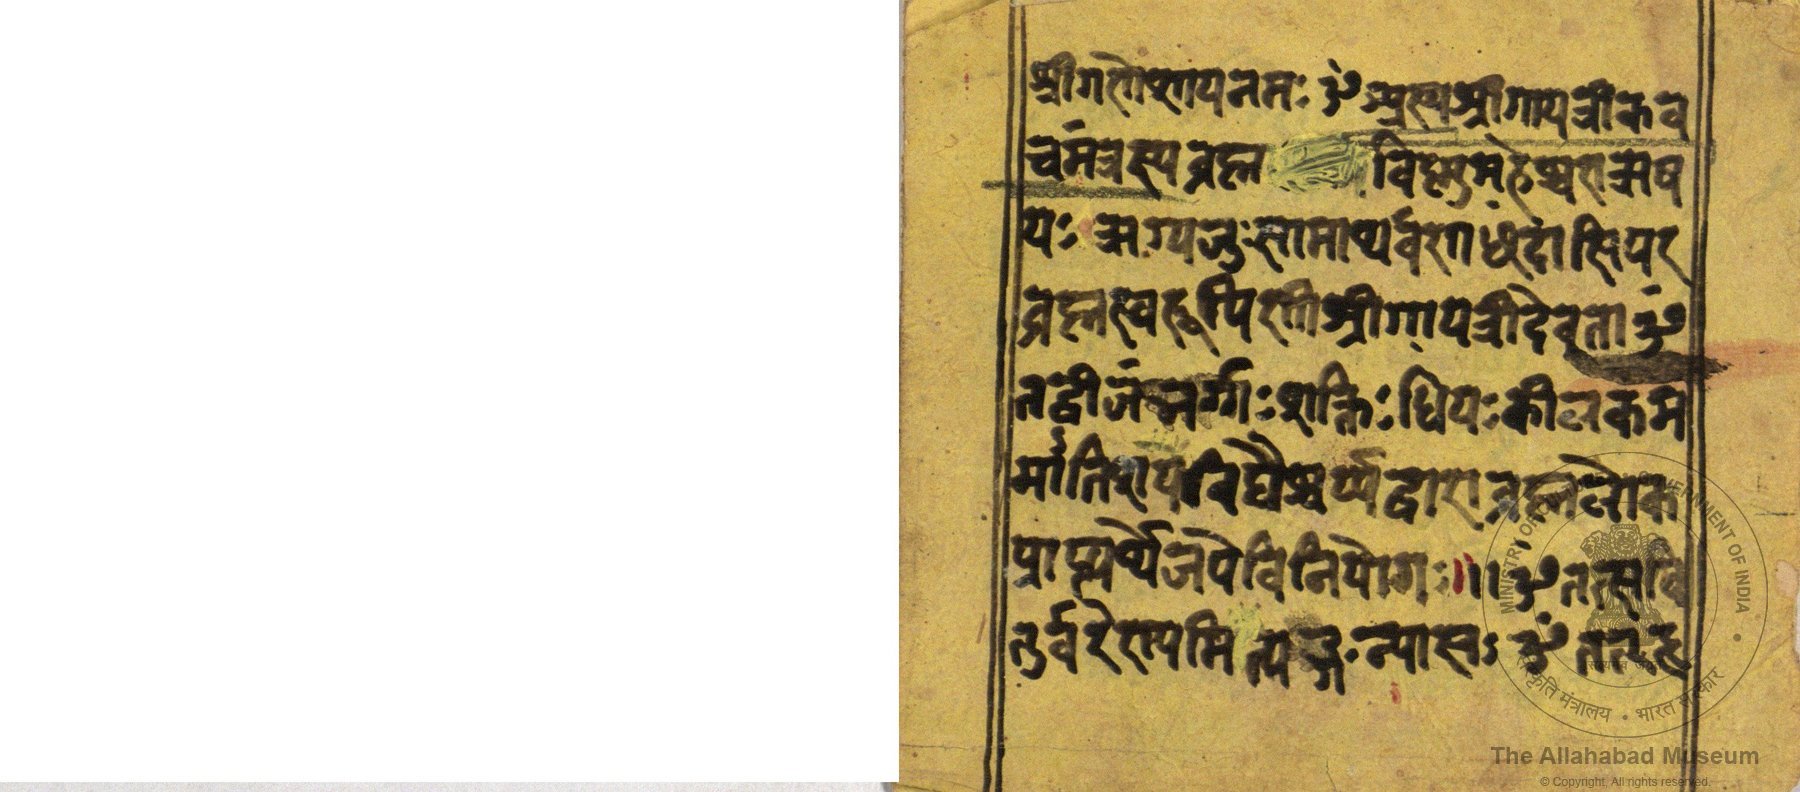 श्रीगणेशायनमः ॐ अस्य श्रीगायत्रीकव
चमंत्रस्य ब्रह्म विष्णुमहेश्वरा ऋष
यः ऋग्यजुःसामाथर्वणा छंदांसि पर
ब्रह्मस्वरूपिणी श्रीगायत्री देवता ॐ
तद्बीजं भर्गाः शक्तिः धियः कीलकं म
द्वारा ब्रह्मलोक
प्राप्त्यर्थे जपे विनियोगः ॥ ॐ तत्सवि
तुर्वरेण्यमि न्यासः ॐ
The Allahabad Museum
© Copyright, All rights reserved.
MINISTRY OF CULTURE, GOVERNMENT OF INDIA
सत्यमेव जयते
संस्कृति मंत्रालय • भारत सरकार